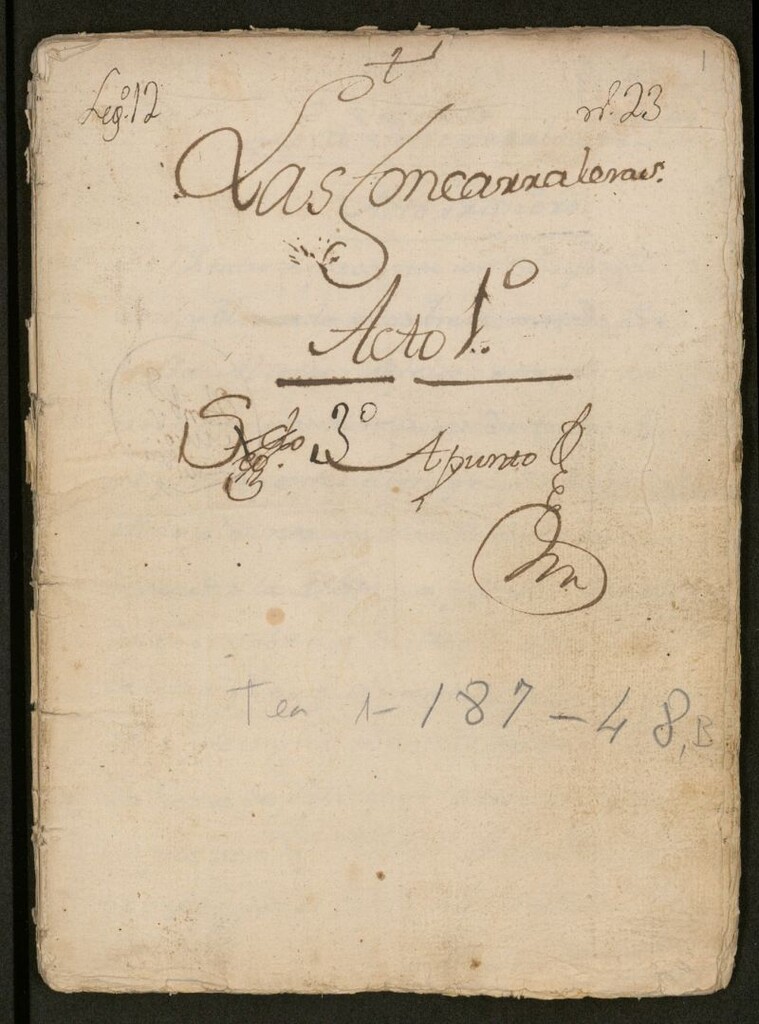 1
Leg.º 12
nº. 23
Las Foncarraleras.
Acto 1.º
3º Apunto
Tea 1-187-48, B